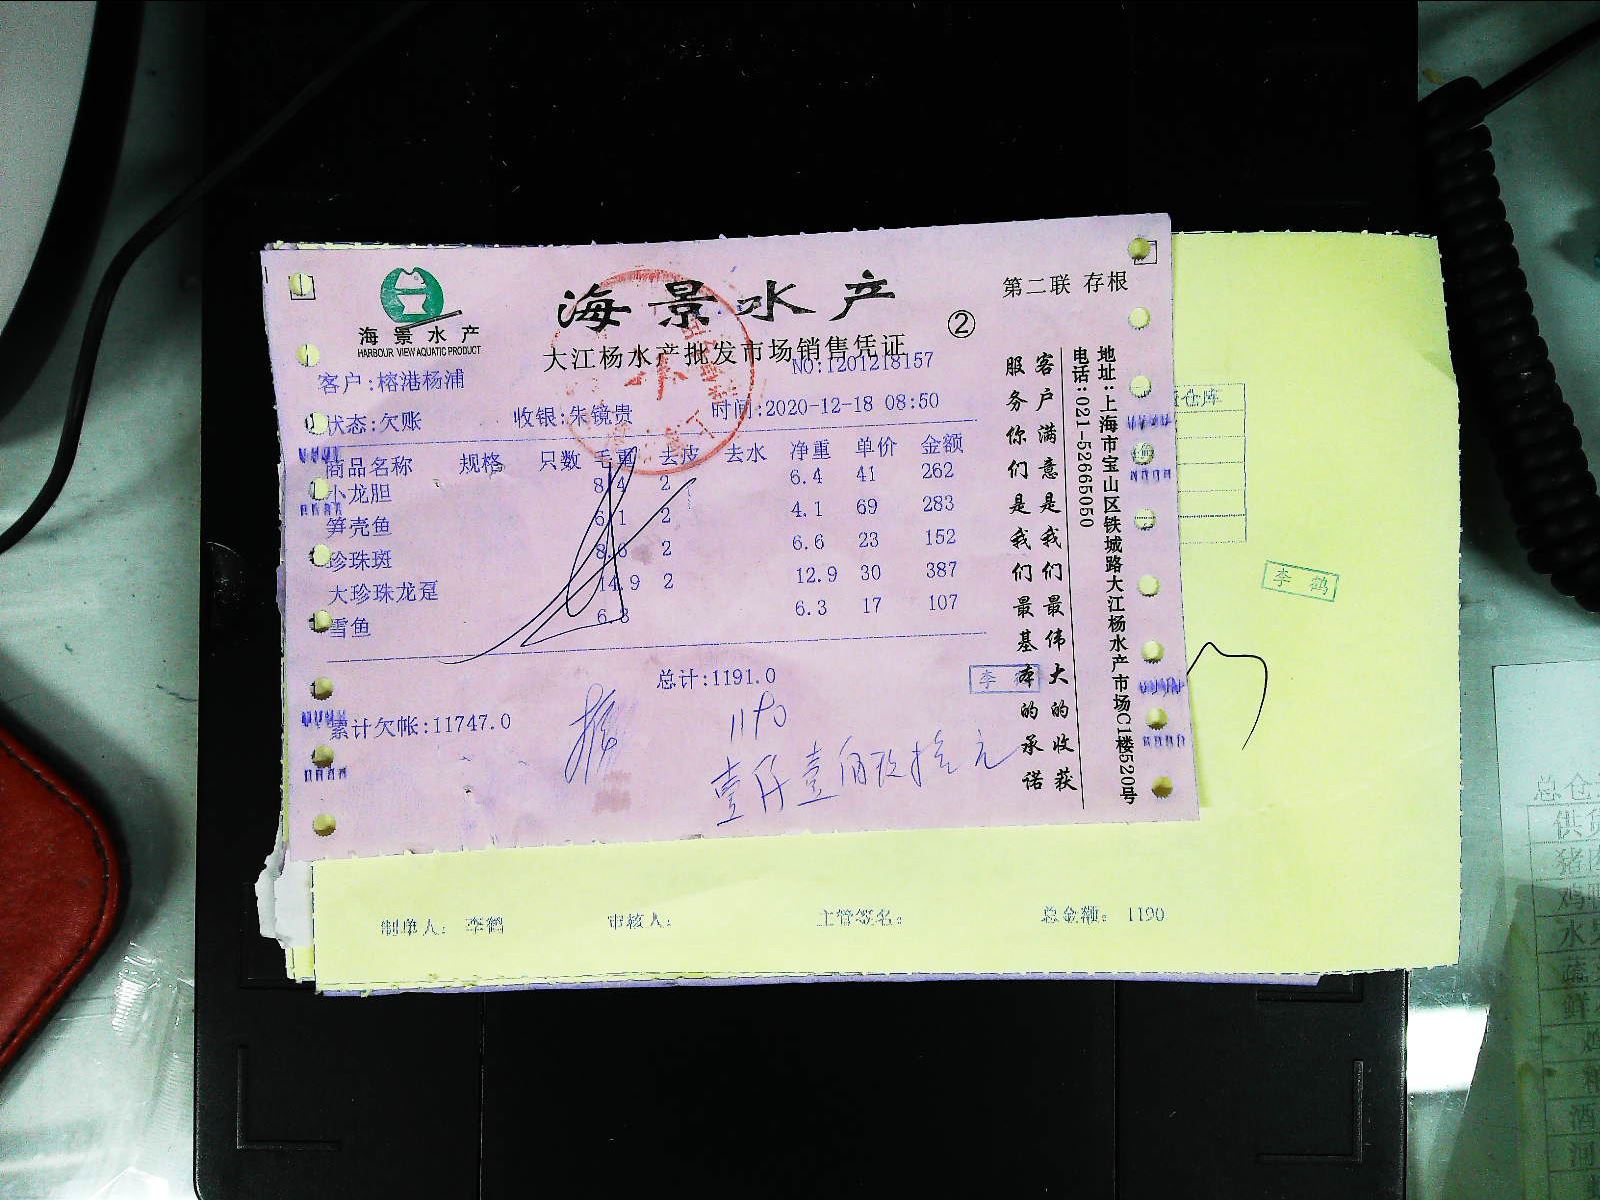 海景水产
HARBOUR VIEW AQUATIC PRODUCT
海景水产
第二联 存根
大江杨水产批发市场销售凭证
②
NO:1201218157
客户:榕港杨浦
状态:欠账 收银:朱镜贵 时间:2020-12-18 08:50
商品名称 规格 只数 毛重 去皮 去水 净重 单价 金额
小龙胆 8.4 2 6.4 41 262
笋壳鱼 6.1 2 4.1 69 283
珍珠斑 8.6 2 6.6 23 152
大珍珠龙趸 14.9 2 12.9 30 387
雪鱼 6.3 6.3 17 107
总计:1191.0
李鹤
累计欠帐:11747.0
1190
壹仟壹佰玖拾元
客户满意是我们最伟大的收获
服务你们是我们最基本的承诺
地址:上海市宝山区铁城路大江杨水产市场C1楼520号
电话:021-52665050
仓库
李鹤
制单人: 李鹤 审核人: 主管签名: 总金额: 1190
总仓
供货
猪肉
鸡鸭
水
蔬
鲜
酒